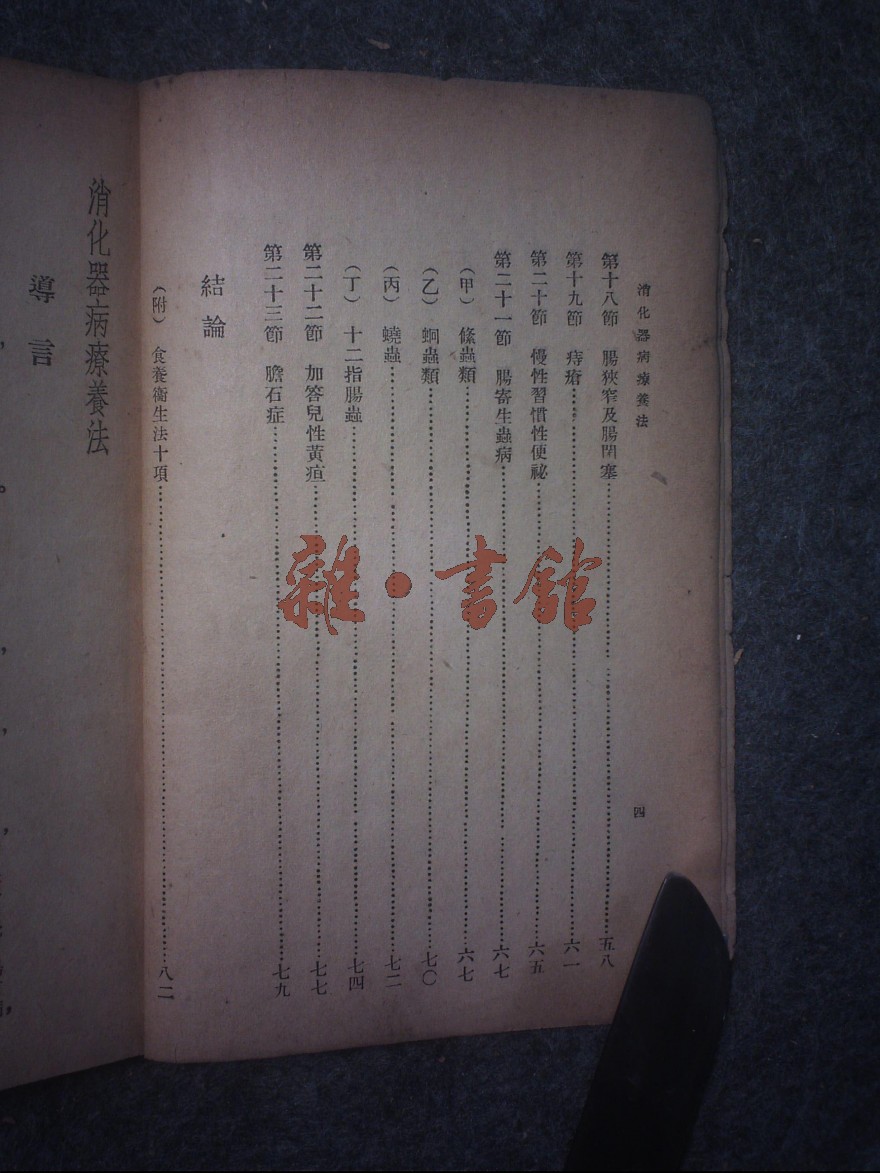 消化器病療養法
四
第十八節 腸狹窄及腸閉塞……五八
第十九節 痔瘡……六一
第二十節 慢性習慣性便祕……六五
第二十一節 腸寄生蟲病……六七
（甲） 絛蟲類……六七
（乙） 蛔蟲類……七〇
（丙） 蟯蟲……七二
（丁） 十二指腸蟲……七四
第二十二節 加答兒性黃疸……七七
第二十三節 膽石症……七九
結論
（附） 食養衞生法十項……八二
消化器病療養法
導言
雜·書館